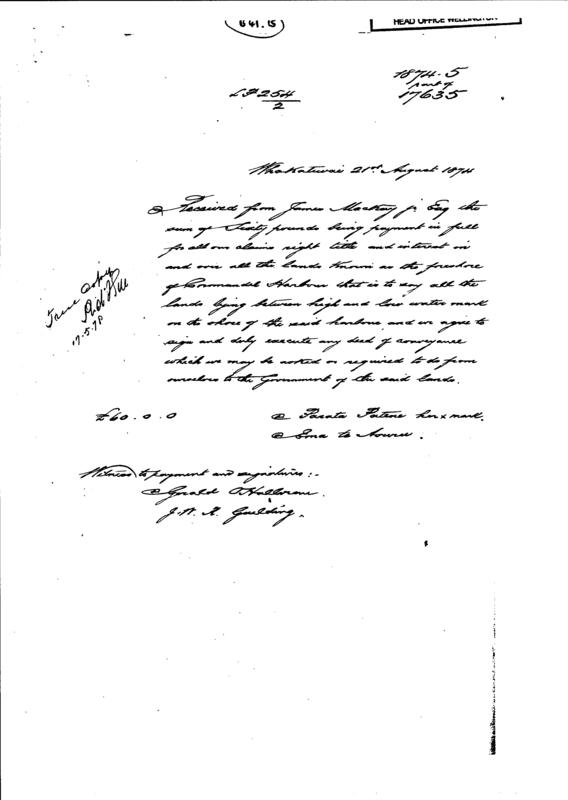 U 41.15
HEAD OFFICE WELLINGTON
1874.5
part of
17635
254
2
Whakatiwai 21st August 1874
Received from James Mackay jr Esq the
sum of Sixty pounds being payment in full
for all our claims right title and interest in
and over all the lands known as the foreshore
of Coromandel Harbour that is to say all the
lands lying between high and low water mark
on the shore of the said harbour and we agree to
sign and duly execute any deed of conveyance
which we may be asked or required to do from
ourselves to the Government of the said lands.
True Copy
17.5.78
£60.0.0
Parata Patene her x mark.
Ema te Aouru.
Witness to payment and signatures:-
Gerald O'Halloran.
J.W.R. Guilding.